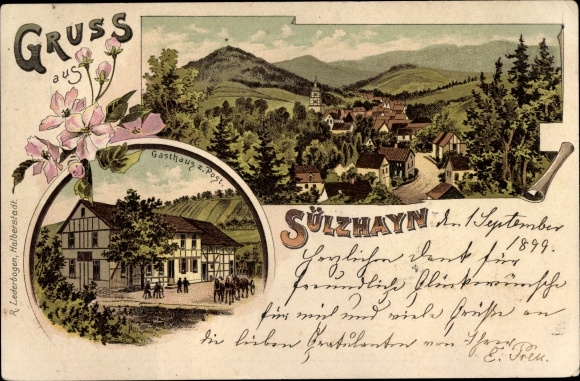 GRUSS
aus
Gasthaus z. Post.
SÜLZHAYN
R. Lederbogen, Halberstadt.
den 1 September
1899.
Herzlichen Dank für
freundliche Glückwünsche
für mich und viele Grüße an
die lieben Gratulanten von Ihrer
E.